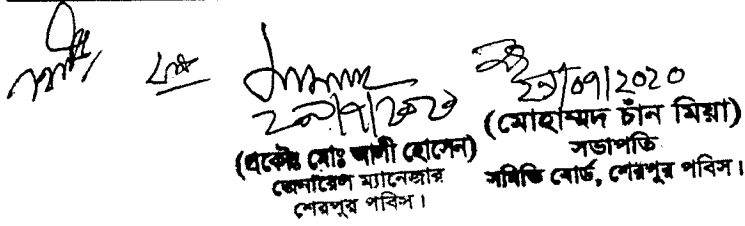 ২০/০৭/২০২০
(প্রকৌঃ মোঃ আলী হোসেন)
জেনারেল ম্যানেজার
শেরপুর পবিস।
২৯/০৭/২০২০
(মোহাম্মদ চাঁন মিয়া)
সভাপতি
সমিতি বোর্ড, শেরপুর পবিস।